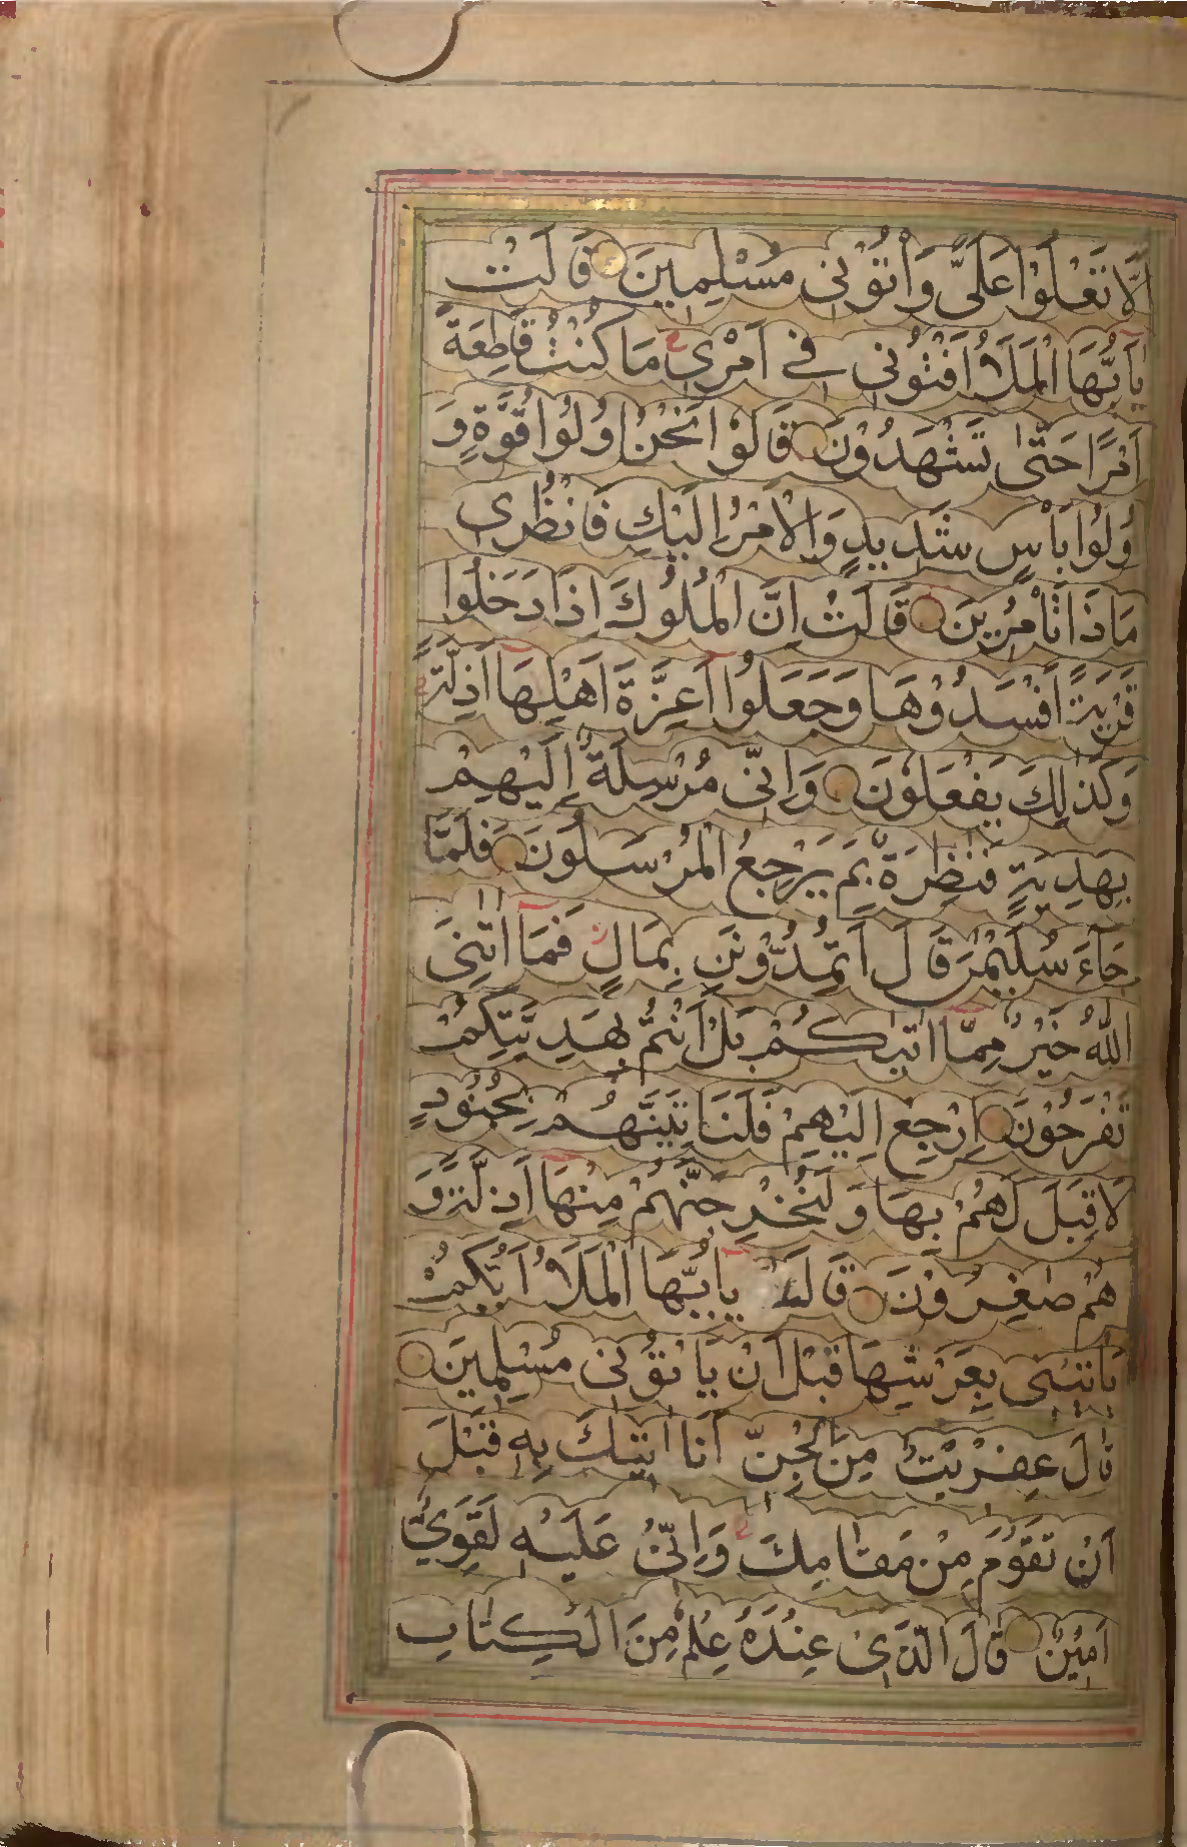 اَلَّا تَعْلُوْا عَلَىَّ وَاْتُوْنِى مُسْلِمِينَ قَالَتْ
يٰٓاَيُّهَا الْمَلَؤُا اَفْتُوْنِى فِے اَمْرِى مَا كُنْتُ قَاطِعَةً
اَمْرًا حَتّٰى تَشْهَدُوْنَ قَالُوْا نَحْنُ اُولُوْا قُوَّةٍ وَ
اُولُوْا بَاْسٍ شَدِيدٍ وَالْاَمْرُ اِلَيْكِ فَانْظُرِى
مَاذَا تَاْمُرِينَ قَالَتْ اِنَّ الْمُلُوْكَ اِذَا دَخَلُوْا
قَرْيَةً اَفْسَدُوْهَا وَجَعَلُوْٓا اَعِزَّةَ اَهْلِهَآ اَذِلَّةً
وَكَذٰلِكَ يَفْعَلُوْنَ وَاِنِّى مُرْسِلَةٌ اِلَيْهِمْ
بِهَدِيَّةٍ فَنٰظِرَةٌ بِمَ يَرْجِعُ الْمُرْسَلُوْنَ فَلَمَّا
جَآءَ سُلَيْمٰنَ قَالَ اَتُمِدُّوْنَنِ بِمَالٍ فَمَآ اٰتٰنِىَ
اللّٰهُ خَيْرٌ مِمَّآ اٰتٰىكُمْ بَلْ اَنْتُمْ بِهَدِيَّتِكُمْ
تَفْرَحُوْنَ اِرْجِعْ اِلَيْهِمْ فَلَنَاْتِيَنَّهُمْ بِجُنُوْدٍ
لَا قِبَلَ لَهُمْ بِهَا وَلَنُخْرِجَنَّهُمْ مِنْهَآ اَذِلَّةً وَ
هُمْ صٰغِرُوْنَ قَالَ يٰٓاَيُّهَا الْمَلَؤُا اَيُّكُمْ
يَاْتِيْنِى بِعَرْشِهَا قَبْلَ اَنْ يَاْتُوْنِى مُسْلِمِينَ
قَالَ عِفْرِيْتٌ مِنَ الْجِنِّ اَنَا اٰتِيْكَ بِهٖ قَبْلَ
اَنْ تَقُوْمَ مِنْ مَقَامِكَ وَاِنِّى عَلَيْهِ لَقَوِىٌّ
اَمِيْنٌ قَالَ الَّذِى عِنْدَهُ عِلْمٌ مِنَ الْكِتَابِ